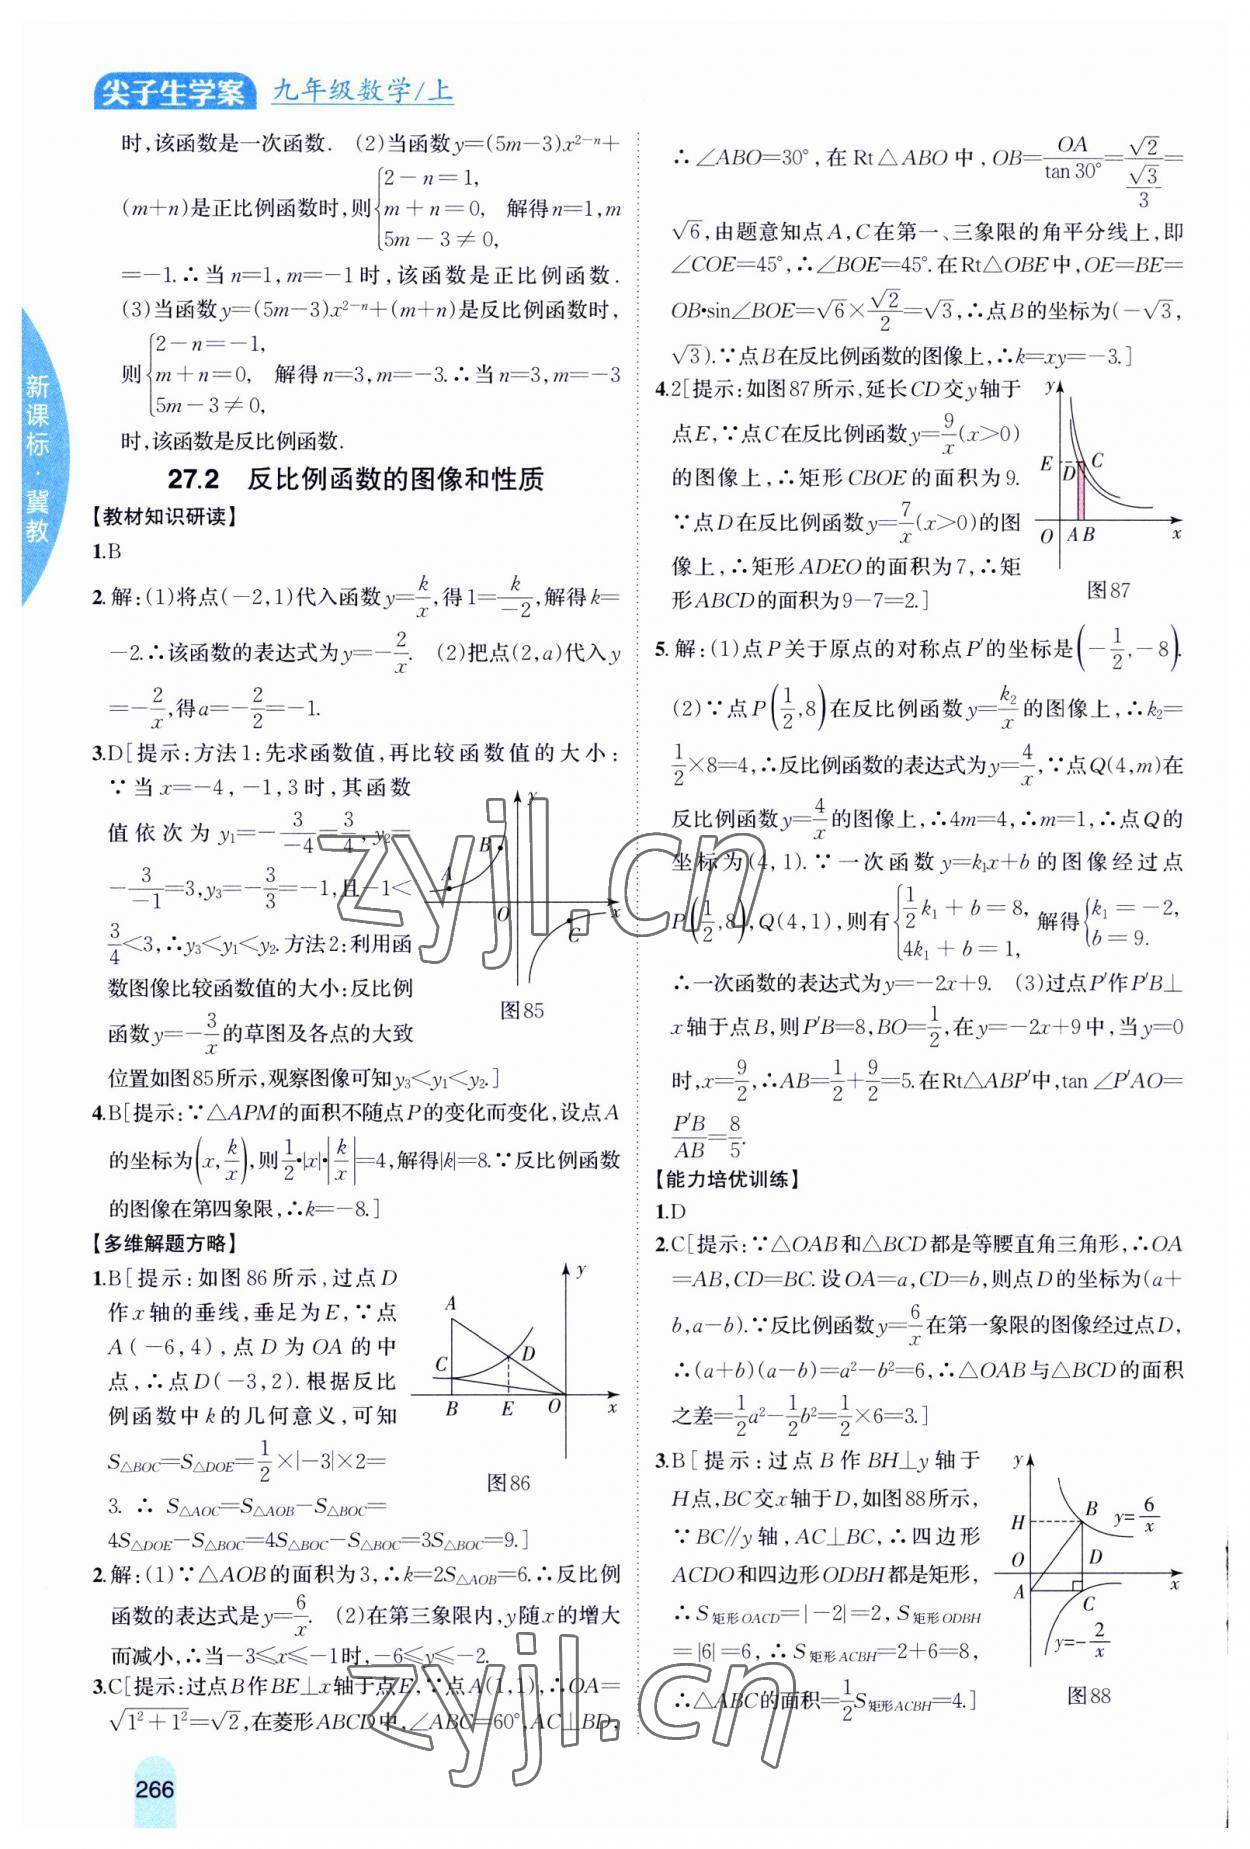 尖子生学案 九年级数学/上
时,该函数是一次函数. (2)当函数y=(5m-3)x²⁻ⁿ+
(m+n)是正比例函数时,则{2-n=1, m+n=0, 5m-3≠0, 解得n=1,m
=-1.∴当n=1,m=-1时,该函数是正比例函数.
(3)当函数y=(5m-3)x²⁻ⁿ+(m+n)是反比例函数时,
则{2-n=-1, m+n=0, 5m-3≠0, 解得n=3,m=-3.∴当n=3,m=-3
时,该函数是反比例函数.
27.2 反比例函数的图像和性质
【教材知识研读】
1.B
2.解:(1)将点(-2,1)代入函数y=k/x,得1=k/-2,解得k=
-2.∴该函数的表达式为y=-2/x. (2)把点(2,a)代入y
=-2/x,得a=-2/2=-1.
3.D[提示:方法1:先求函数值,再比较函数值的大小:
∵当x=-4,-1,3时,其函数
值依次为y₁=-3/-4=3/4,y₂=
-3/-1=3,y₃=-3/3=-1,且-1<
3/4<3,∴y₃<y₁<y₂.方法2:利用函
数图像比较函数值的大小:反比例
函数y=-3/x的草图及各点的大致
位置如图85所示,观察图像可知y₃<y₁<y₂.]
y
B
A
O
x
C
图85
4.B[提示:∵△APM的面积不随点P的变化而变化,设点A
的坐标为(x,k/x),则1/2•|x|•|k/x|=4,解得|k|=8.∵反比例函数
的图像在第四象限,∴k=-8.]
【多维解题方略】
1.B[提示:如图86所示,过点D
作x轴的垂线,垂足为E,∵点
A(-6,4),点D为OA的中
点,∴点D(-3,2).根据反比
例函数中k的几何意义,可知
S△BOC=S△DOE=1/2×|-3|×2=
3. ∴ S△AOC=S△AOB-S△BOC=
4S△DOE-S△BOC=4S△BOC-S△BOC=3S△BOC=9.]
y
A
C
D
B
E
O
x
图86
2.解:(1)∵△AOB的面积为3,∴k=2S△AOB=6.∴反比例
函数的表达式是y=6/x. (2)在第三象限内,y随x的增大
而减小,∴当-3≤x≤-1时,-6≤y≤-2.
3.C[提示:过点B作BE⊥x轴于点E,∵点A(1,1),∴OA=
√1²+1²=√2,在菱形ABCD中,∠ABC=60°,AC⊥BD,
∴∠ABO=30°,在Rt△ABO中,OB=OA/tan 30°=√2/(√3/3)=
√6,由题意知点A,C在第一、三象限的角平分线上,即
∠COE=45°,∴∠BOE=45°.在Rt△OBE中,OE=BE=
OB•sin∠BOE=√6×√2/2=√3,∴点B的坐标为(-√3,
√3).∵点B在反比例函数的图像上,∴k=xy=-3.]
4.2[提示:如图87所示,延长CD交y轴于
点E,∵点C在反比例函数y=9/x(x>0)
的图像上,∴矩形CBOE的面积为9.
∵点D在反比例函数y=7/x(x>0)的图
像上,∴矩形ADEO的面积为7,∴矩
形ABCD的面积为9-7=2.]
y
E
D
C
O
A
B
x
图87
5.解:(1)点P关于原点的对称点P′的坐标是(-1/2,-8).
(2)∵点P(1/2,8)在反比例函数y=k₂/x的图像上,∴k₂=
1/2×8=4,∴反比例函数的表达式为y=4/x,∵点Q(4,m)在
反比例函数y=4/x的图像上,∴4m=4,∴m=1,∴点Q的
坐标为(4,1).∵一次函数y=k₁x+b的图像经过点
P(1/2,8),Q(4,1),则有{1/2k₁+b=8, 4k₁+b=1, 解得{k₁=-2, b=9.
∴一次函数的表达式为y=-2x+9. (3)过点P′作P′B⊥
x轴于点B,则P′B=8,BO=1/2,在y=-2x+9中,当y=0
时,x=9/2,∴AB=1/2+9/2=5.在Rt△ABP′中,tan∠P′AO=
P′B/AB=8/5.
【能力培优训练】
1.D
2.C[提示:∵△OAB和△BCD都是等腰直角三角形,∴OA
=AB,CD=BC.设OA=a,CD=b,则点D的坐标为(a+
b,a-b).∵反比例函数y=6/x在第一象限的图像经过点D,
∴(a+b)(a-b)=a²-b²=6,∴△OAB与△BCD的面积
之差=1/2a²-1/2b²=1/2×6=3.]
3.B[提示:过点B作BH⊥y轴于
H点,BC交x轴于D,如图88所示,
∵BC∥y轴,AC⊥BC,∴四边形
ACDO和四边形ODBH都是矩形,
∴S矩形OACD=|-2|=2,S矩形ODBH
=|6|=6,∴S矩形ACBH=2+6=8,
∴△ABC的面积=1/2S矩形ACBH=4.]
y
H
B
y=6/x
O
D
A
x
C
y=-2/x
图88
新课标·冀教
266
zyjl.cn
zyjl.cn